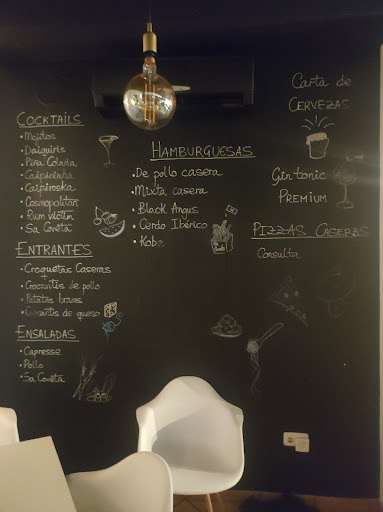 COCKTAILS
• Mojitos
• Daiquiris
• Piña Colada
• Caipirinha
• Caipiroska
• Cosmopolitan
• Rum
• Sa Coveta
ENTRANTES
• Croquetas Caseras
• Crocantis de pollo
• Patatas bravas
• Crocantis de queso
ENSALADAS
• Capresse
• Pollo
• Sa Coveta
HAMBURGUESAS
• De pollo casera
• Mixta casera
• Black Angus
• Cerdo Ibérico
• Kobe
Carta de
CERVEZAS
Gintonic
PREMIUM
PIZZAS CASERAS
Consulta